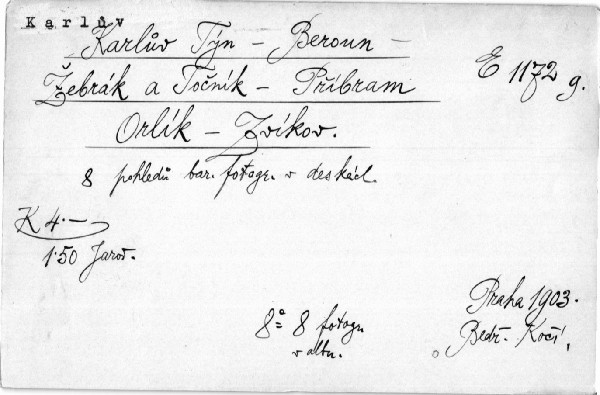 Karlův
Karlův Týn – Beroun –
Žebrák a Točník – Příbram
E 1172 g.
Orlík – Zvíkov.
8 pohledů bar. fotogr. v deskách.
K 4.—
1.50 Jarod.
Praha 1903.
8° 8 fotogr
v albu.
Bedř. Kočí,